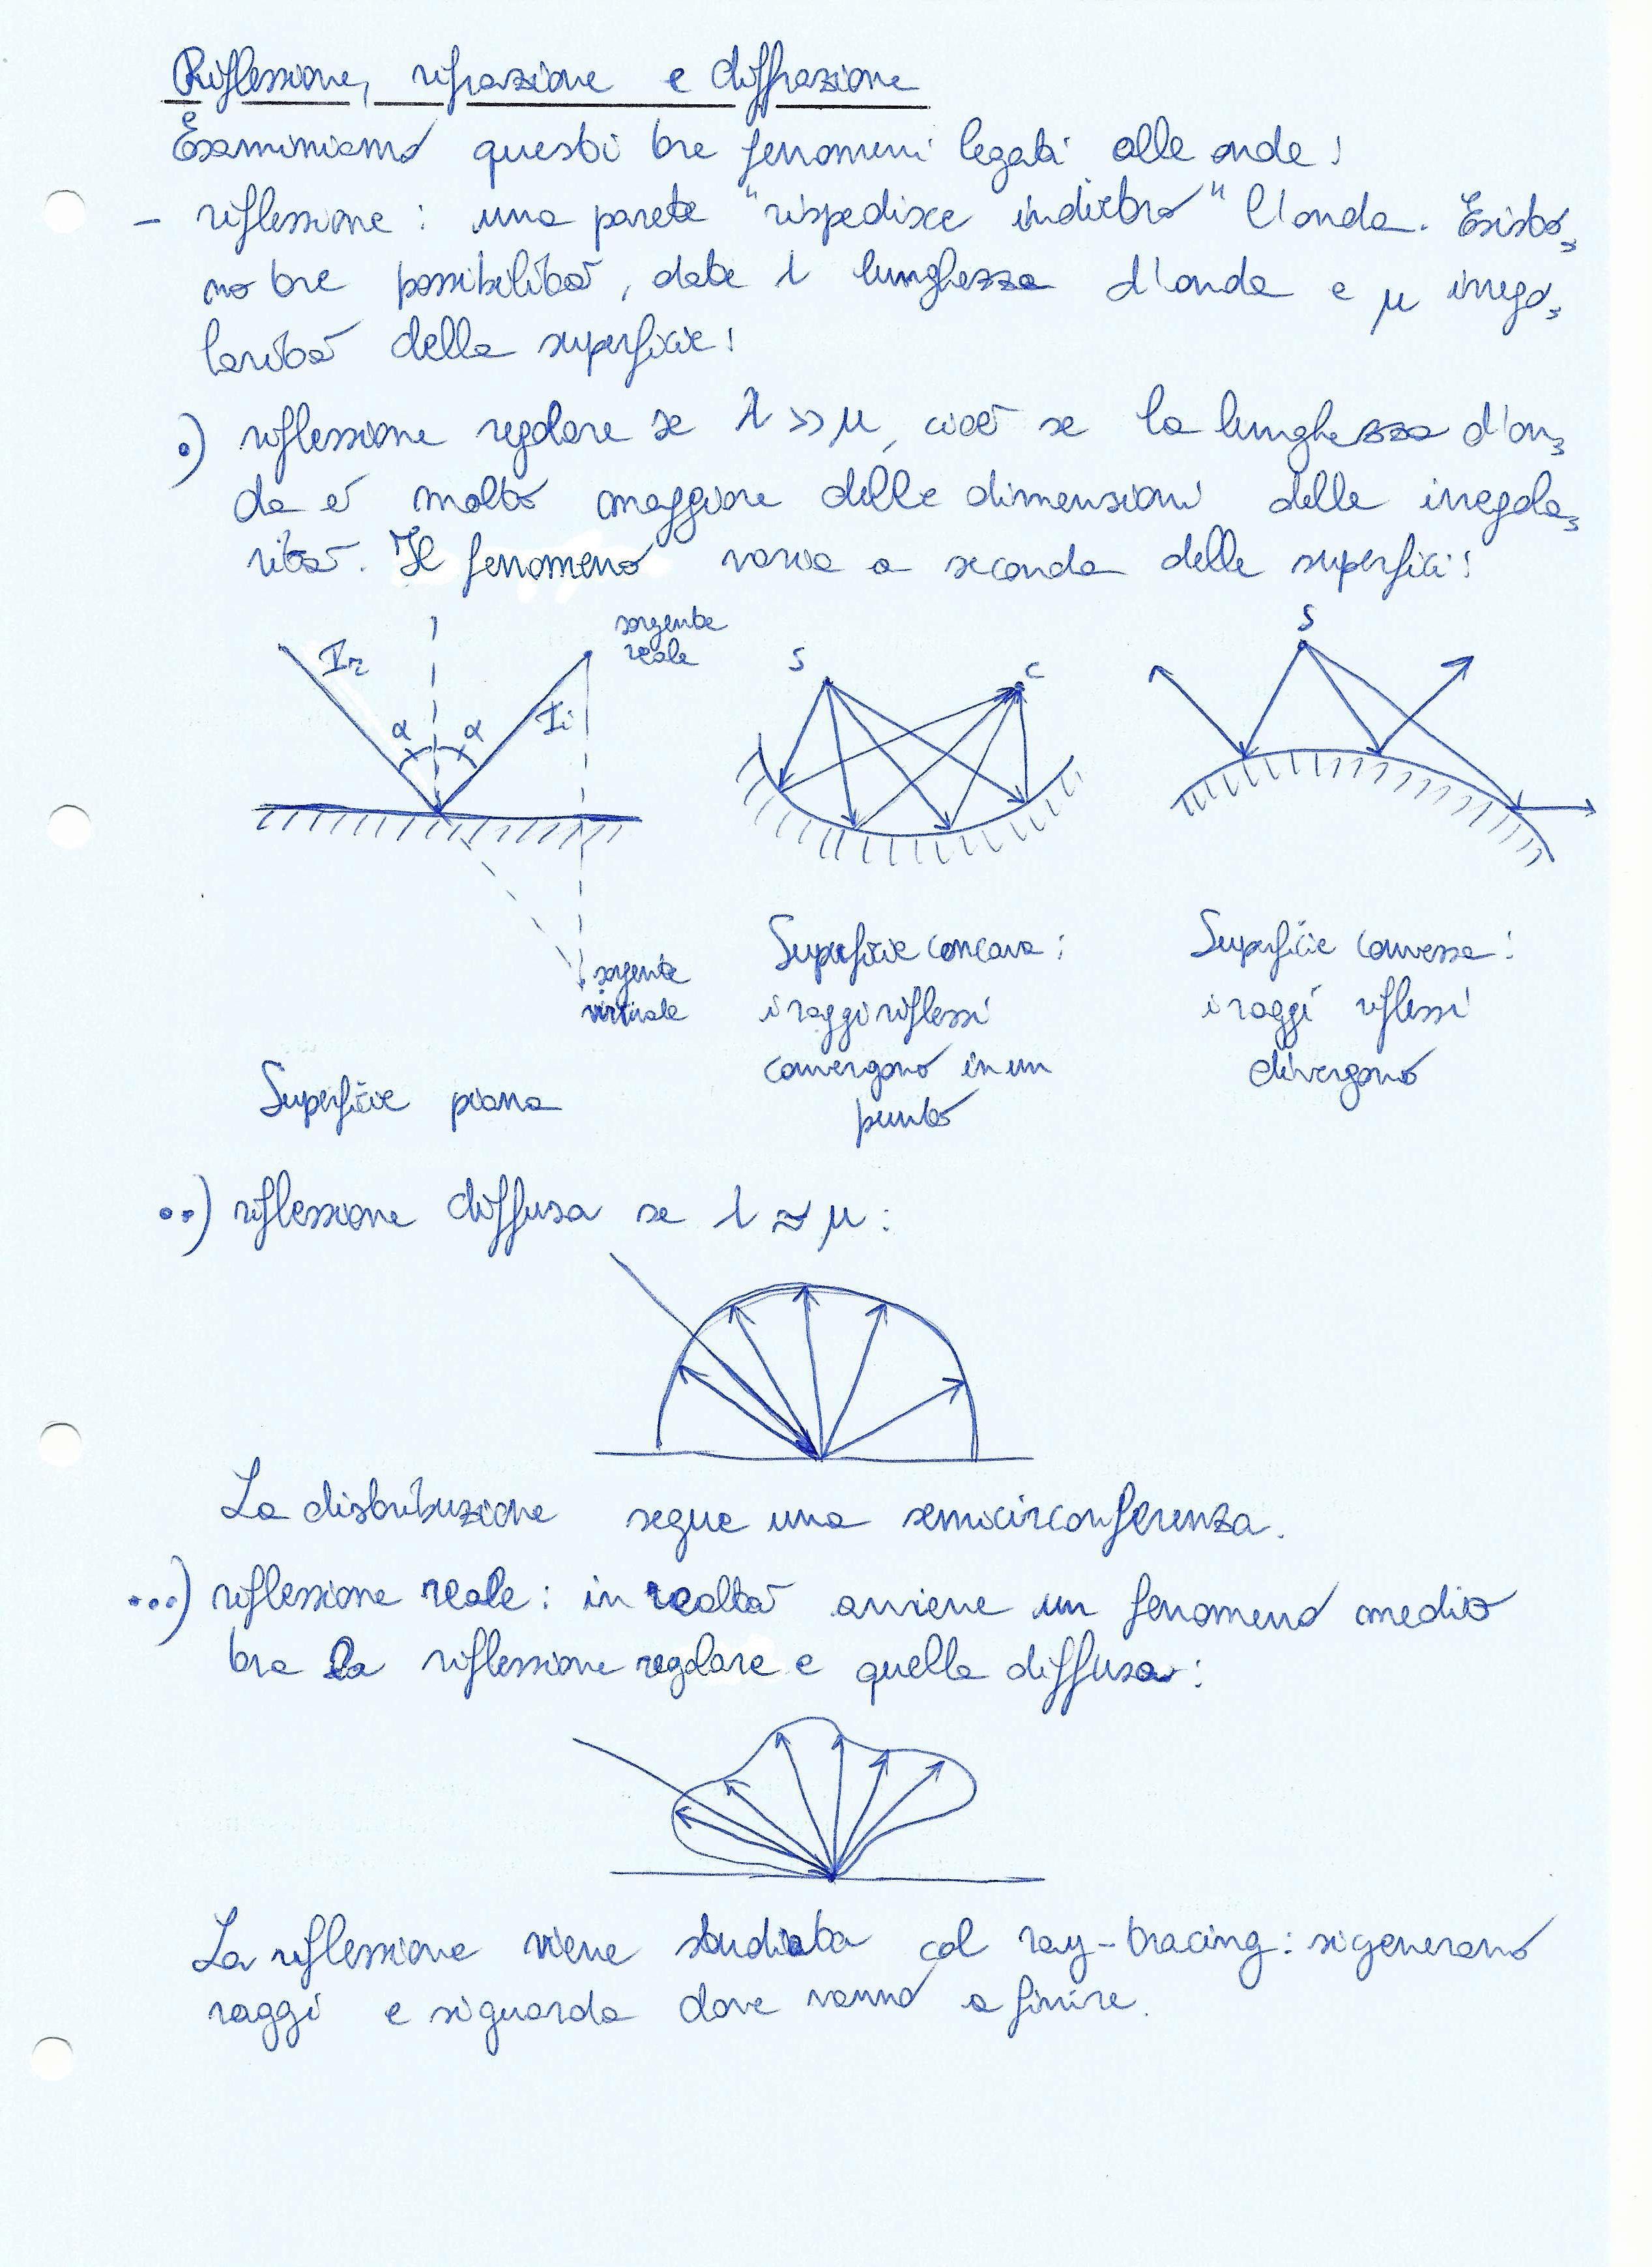 Riflessione, rifrazione e diffrazione
Esaminiamo questi tre fenomeni legati alle onde:
- riflessione: una parete "rispedisce indietro" l'onda. Esisto-
no tre possibilità, date λ lunghezza d'onda e μ irrego-
larità della superficie:
•) riflessione regolare se λ >> μ, cioè se la lunghezza d'on-
da è molto maggiore delle dimensioni delle irregola-
rità. Il fenomeno varia a seconda delle superfici:
Ir
α α
Ii
sorgente
reale
sorgente
virtuale
Superficie piana
S C
Superficie concava:
i raggi riflessi
convergono in un
punto
S
Superficie convessa:
i raggi riflessi
divergono
••) riflessione diffusa se λ ≈ μ:
La distribuzione segue una semicirconferenza.
•••) riflessione reale: in realtà avviene un fenomeno medio
tra la riflessione regolare e quella diffusa:
La riflessione viene studiata col ray-tracing: si generano
raggi e si guarda dove vanno a finire.